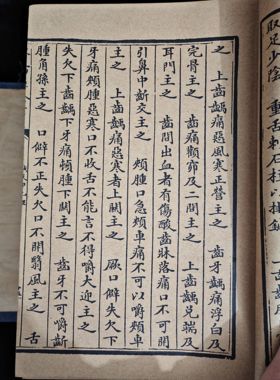 取足少陰
之　上齒齲痛惡風寒正營主之　齒牙齲痛浮白及
完骨主之　齒痛顴窌及二間主之　上齒齲兌端及
耳門主之　齒間出血者有傷酸齒牀落痛口不可開
引鼻中齗交主之　頰腫口急頰車痛不可以嚼頰車
主之　上齒齲痛惡寒者上關主之　厥口僻失欠下
牙痛頰腫惡寒口不收舌不能言不得嚼大迎主之
失欠下齒齲下牙痛䪼腫下關主之　齒牙不可嚼齗
腫角孫主之　口僻不正失欠口不開翳風主之　舌